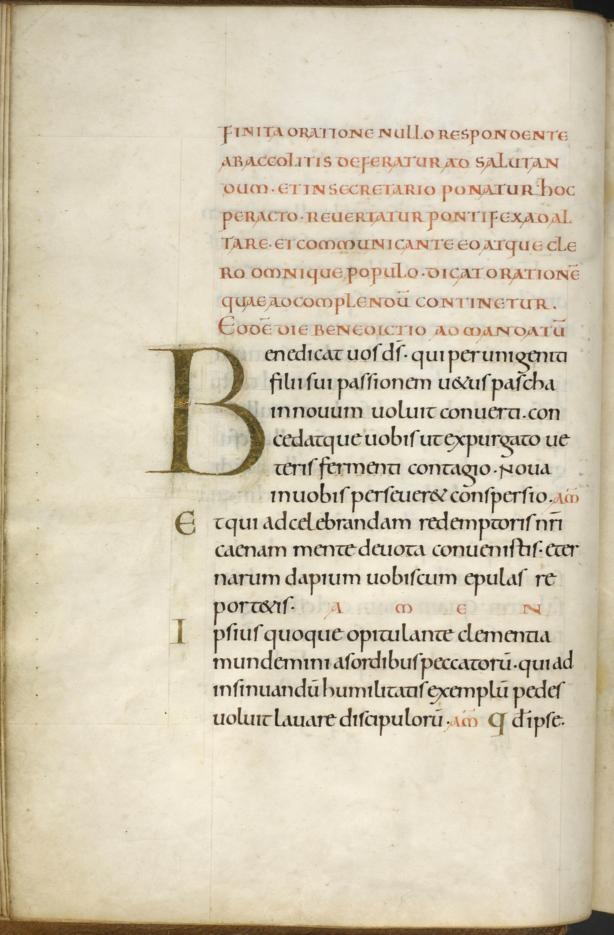 FINITA ORATIONE NULLO RESPONDENTE
AB ACCOLITIS DEFERATUR AD SALUTAN
DUM · ET IN SECRETARIO PONATUR hOC
PERACTO · REUERTATUR PONTIFEX AD AL
TARE · ET COMMUNICANTE EO ATQUE CLE
RO OMNIQUE POPULO · DICAT ORATIONĒ
QUAE AD COMPLENDŪ CONTINETUR .
EODĒ DIE BENEDICTIO AD MANDATŪ
Benedicat uos d̄s · qui per unigeniti
filii sui passionem uetus pascha
in nouum uoluit conuerti · con
cedatque uobis ut expurgato ue
teris fermenti contagio · Noua
in uobis perseueret conspersio · am̄
Et qui ad celebrandam redemptoris nr̄i
caenam mente deuota conuenistis · eter
narum dapium uobiscum epulas re
portetis · A M E N
Ipsius quoque opitulante clementia
mundemini a sordibus peccatorū · qui ad
insinuandū humilitatis exemplū pedes
uoluit lauare discipulorū · am̄ q d̄ ipse ·